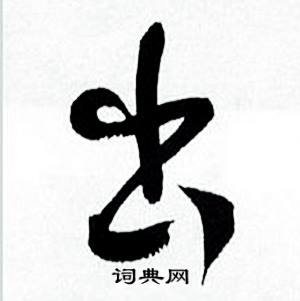 出
词典网